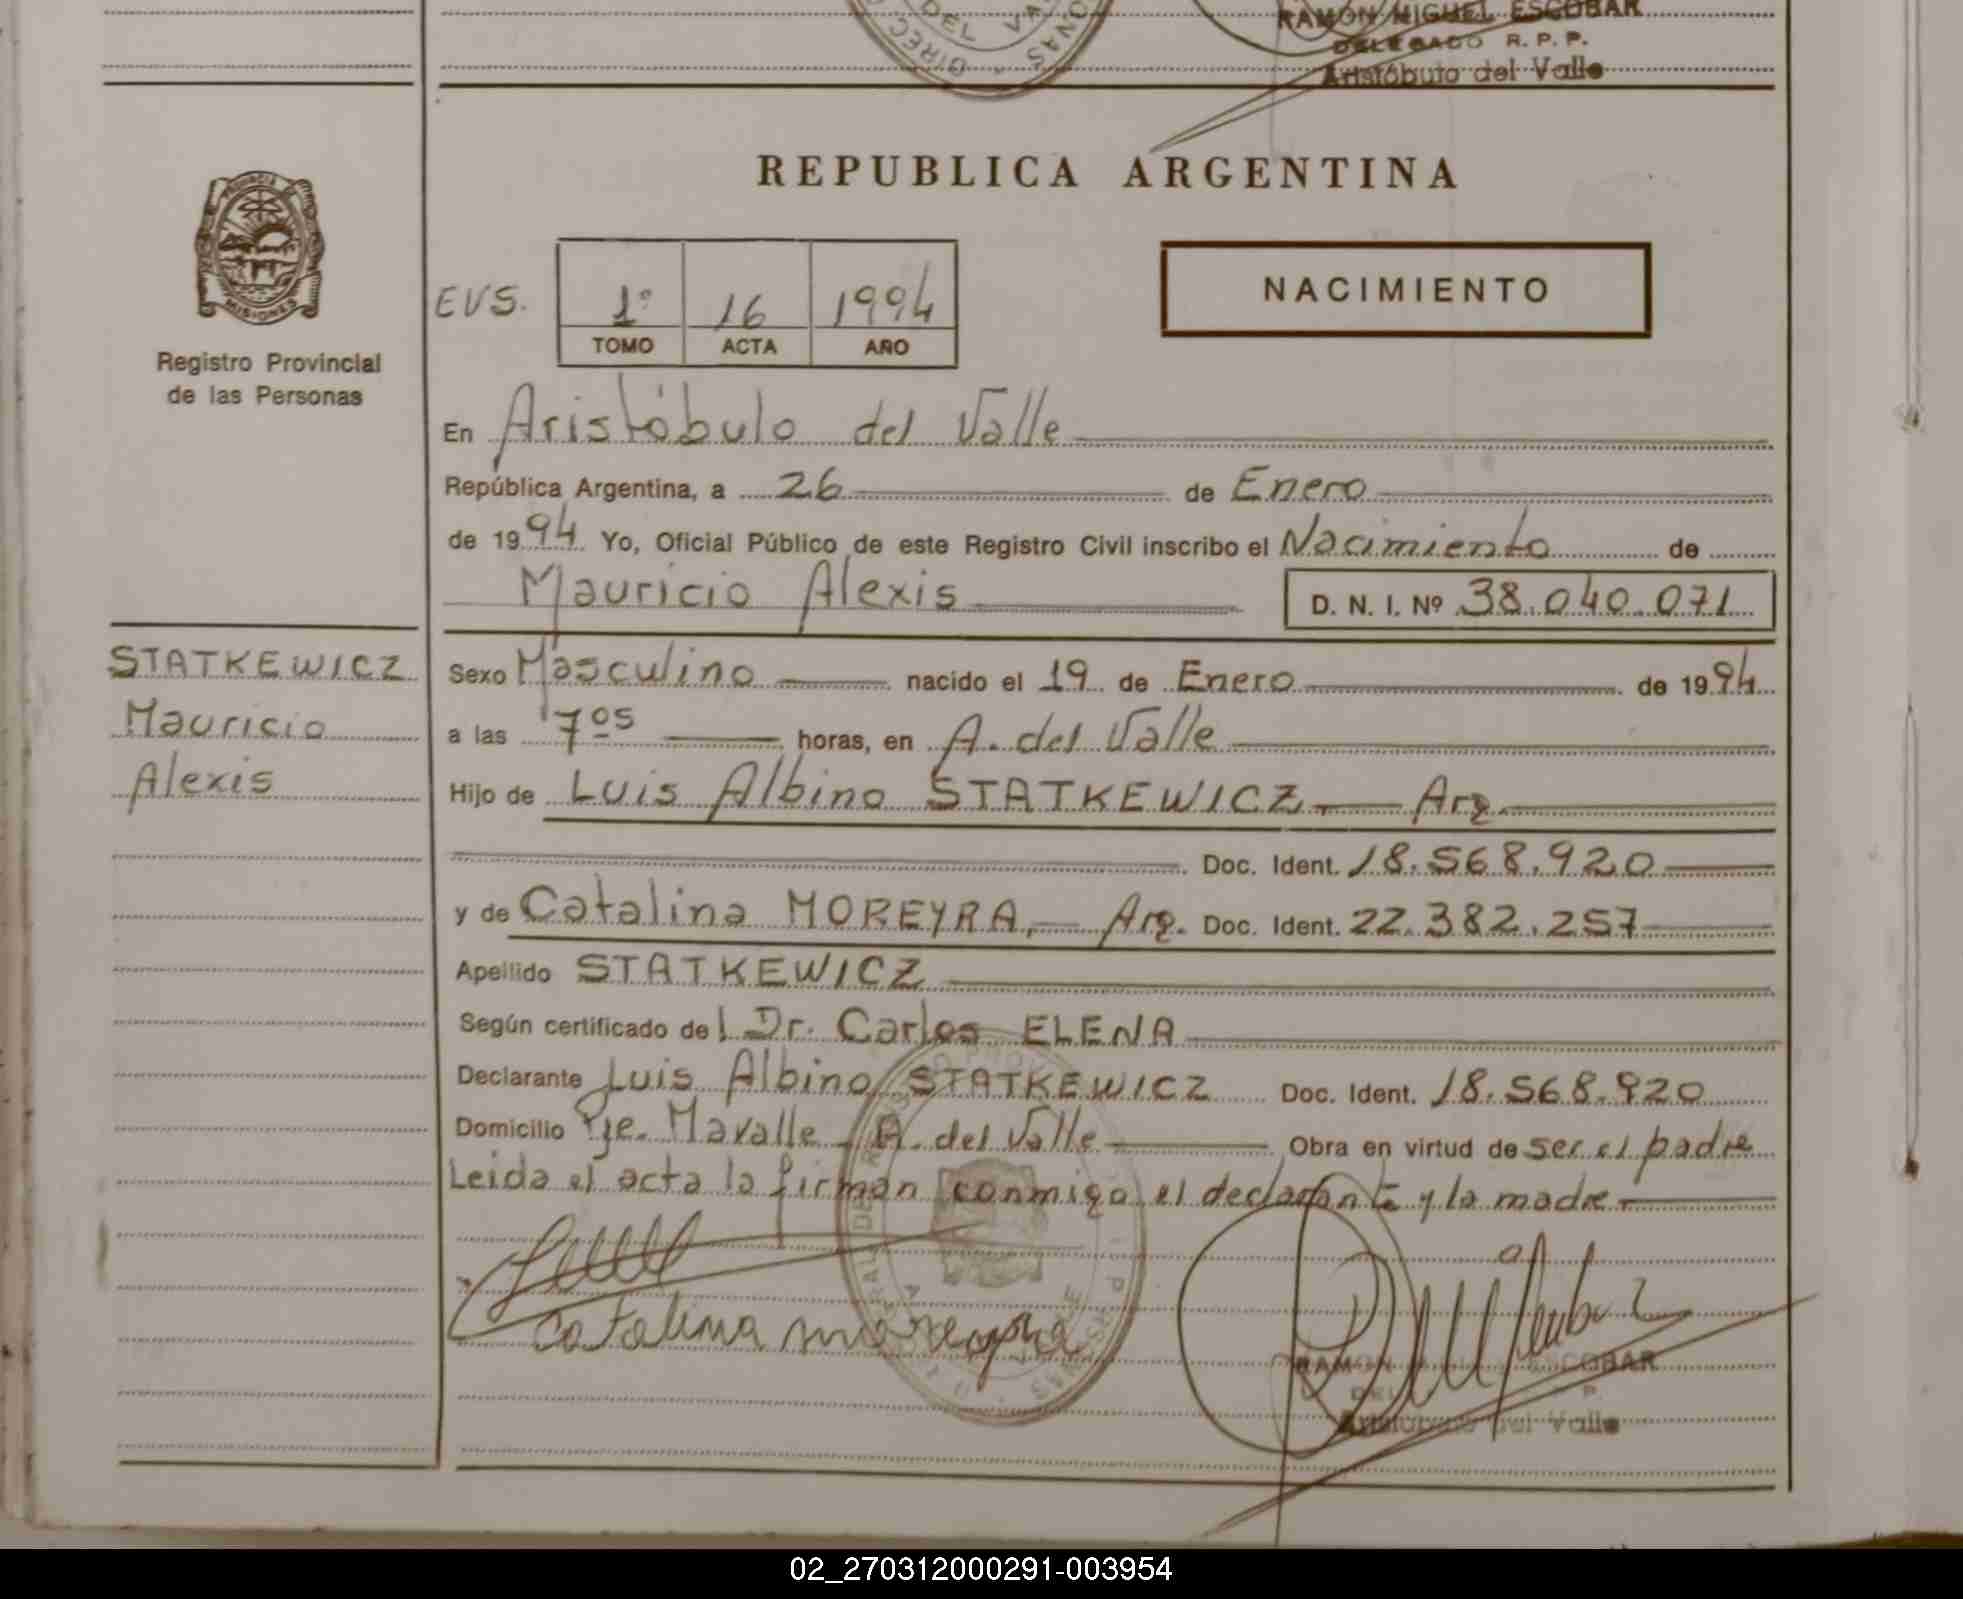 RAMÓN MIGUEL ESCOBAR
DELEGADO R. P. P.
Aristóbulo del Valle
DIREC
DEL VA
REPUBLICA ARGENTINA
PROVINCIA
MISIONES
Registro Provincial
de las Personas
EVS.
1º 16 1994
TOMO ACTA AÑO
NACIMIENTO
En Aristóbulo del Valle
República Argentina, a 26 de Enero
de 1994 Yo, Oficial Público de este Registro Civil inscribo el Nacimiento de
Mauricio Alexis D. N. I. Nº 38.040.071
STATKEWICZ
Mauricio
Alexis
Sexo Masculino nacido el 19 de Enero de 1994
a las 7 05 horas, en A. del Valle
Hijo de Luis Albino STATKEWICZ Arg.
Doc. Ident. 18.568.920
y de Catalina MOREYRA, Arg. Doc. Ident. 22.382.257
Apellido STATKEWICZ
Según certificado del Dr. Carlos ELENA
Declarante Luis Albino STATKEWICZ Doc. Ident. 18.568.920
Domicilio Pje. Mavalle A. del Valle Obra en virtud de ser el padre
Leida el acta la firman conmigo el declarante y la madre
Catalina moreyra
RAMON ESCOBAR
DEL P.
Aristóbulo del Valle
02_270312000291-003954